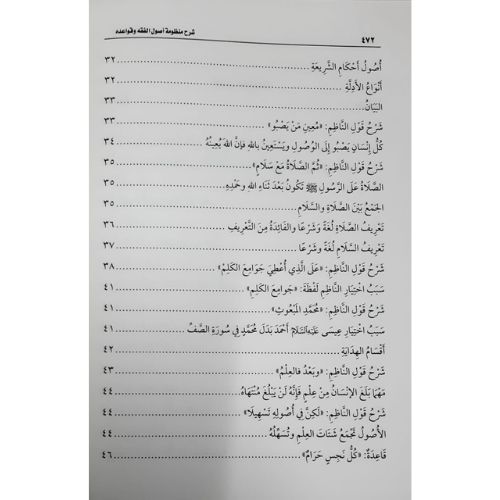 ٤٧٢ شرح منظومة أصول الفقه وقواعده
أُصُولُ أَحْكَامِ الشَّرِيعَةِ ٣٢
أَنْوَاعُ الأَدِلَّةِ ٣٢
البَيَانُ ٣٣
شَرْحُ قَوْلِ النَّاظِمِ: «مُعِينِ مَنْ يَصْبُو» ٣٣
كُلُّ إِنْسَانٍ يَصْبُو إِلَى الوُصُولِ وَيَسْتَعِينُ بِاللهِ فَإِنَّ اللهَ يُعِينُهُ ٣٤
شَرْحُ قَوْلِ النَّاظِمِ: «ثُمَّ الصَّلَاةُ مَعْ سَلَامٍ» ٣٥
الصَّلَاةُ عَلَى الرَّسُولِ ﷺ تَكُونُ بَعْدَ ثَنَاءِ اللهِ وَحَمْدِهِ ٣٥
الجَمْعُ بَيْنَ الصَّلَاةِ وَالسَّلَامِ ٣٥
تَعْرِيفُ الصَّلَاةِ لُغَةً وَشَرْعًا وَالفَائِدَةُ مِنَ التَّعْرِيفِ ٣٦
تَعْرِيفُ السَّلَامِ لُغَةً وَشَرْعًا ٣٧
شَرْحُ قَوْلِ النَّاظِمِ: «عَلَى الَّذِي أُعْطِيَ جَوَامِعَ الكَلِمْ» ٣٨
سَبَبُ اخْتِيَارِ النَّاظِمِ لَفْظَةَ: «جَوَامِعَ الكَلِمِ» ٤١
شَرْحُ قَوْلِ النَّاظِمِ: «مُحَمَّدِ المَبْعُوثِ» ٤١
سَبَبُ اخْتِيَارِ عِيسَى عَلَيْهِ السَّلَامُ أَحْمَدَ بَدَلَ مُحَمَّدٍ فِي سُورَةِ الصَّفِّ ٤١
أَقْسَامُ الهِدَايَةِ ٤٢
شَرْحُ قَوْلِ النَّاظِمِ: «وَبَعْدُ فَالعِلْمُ» ٤٣
مَهْمَا بَلَغَ الإِنْسَانُ مِنْ عِلْمٍ فَإِنَّهُ لَنْ يَبْلُغَ مُنْتَهَاهُ ٤٤
شَرْحُ قَوْلِ النَّاظِمِ: «لَكِنَّ فِي أُصُولِهِ تَسْهِيلَا» ٤٤
الأُصُولُ تَجْمَعُ شَتَاتَ العِلْمِ وَتُسَهِّلُهُ ٤٤
قَاعِدَةٌ: «كُلُّ نَجِسٍ حَرَامٌ» ٤٦